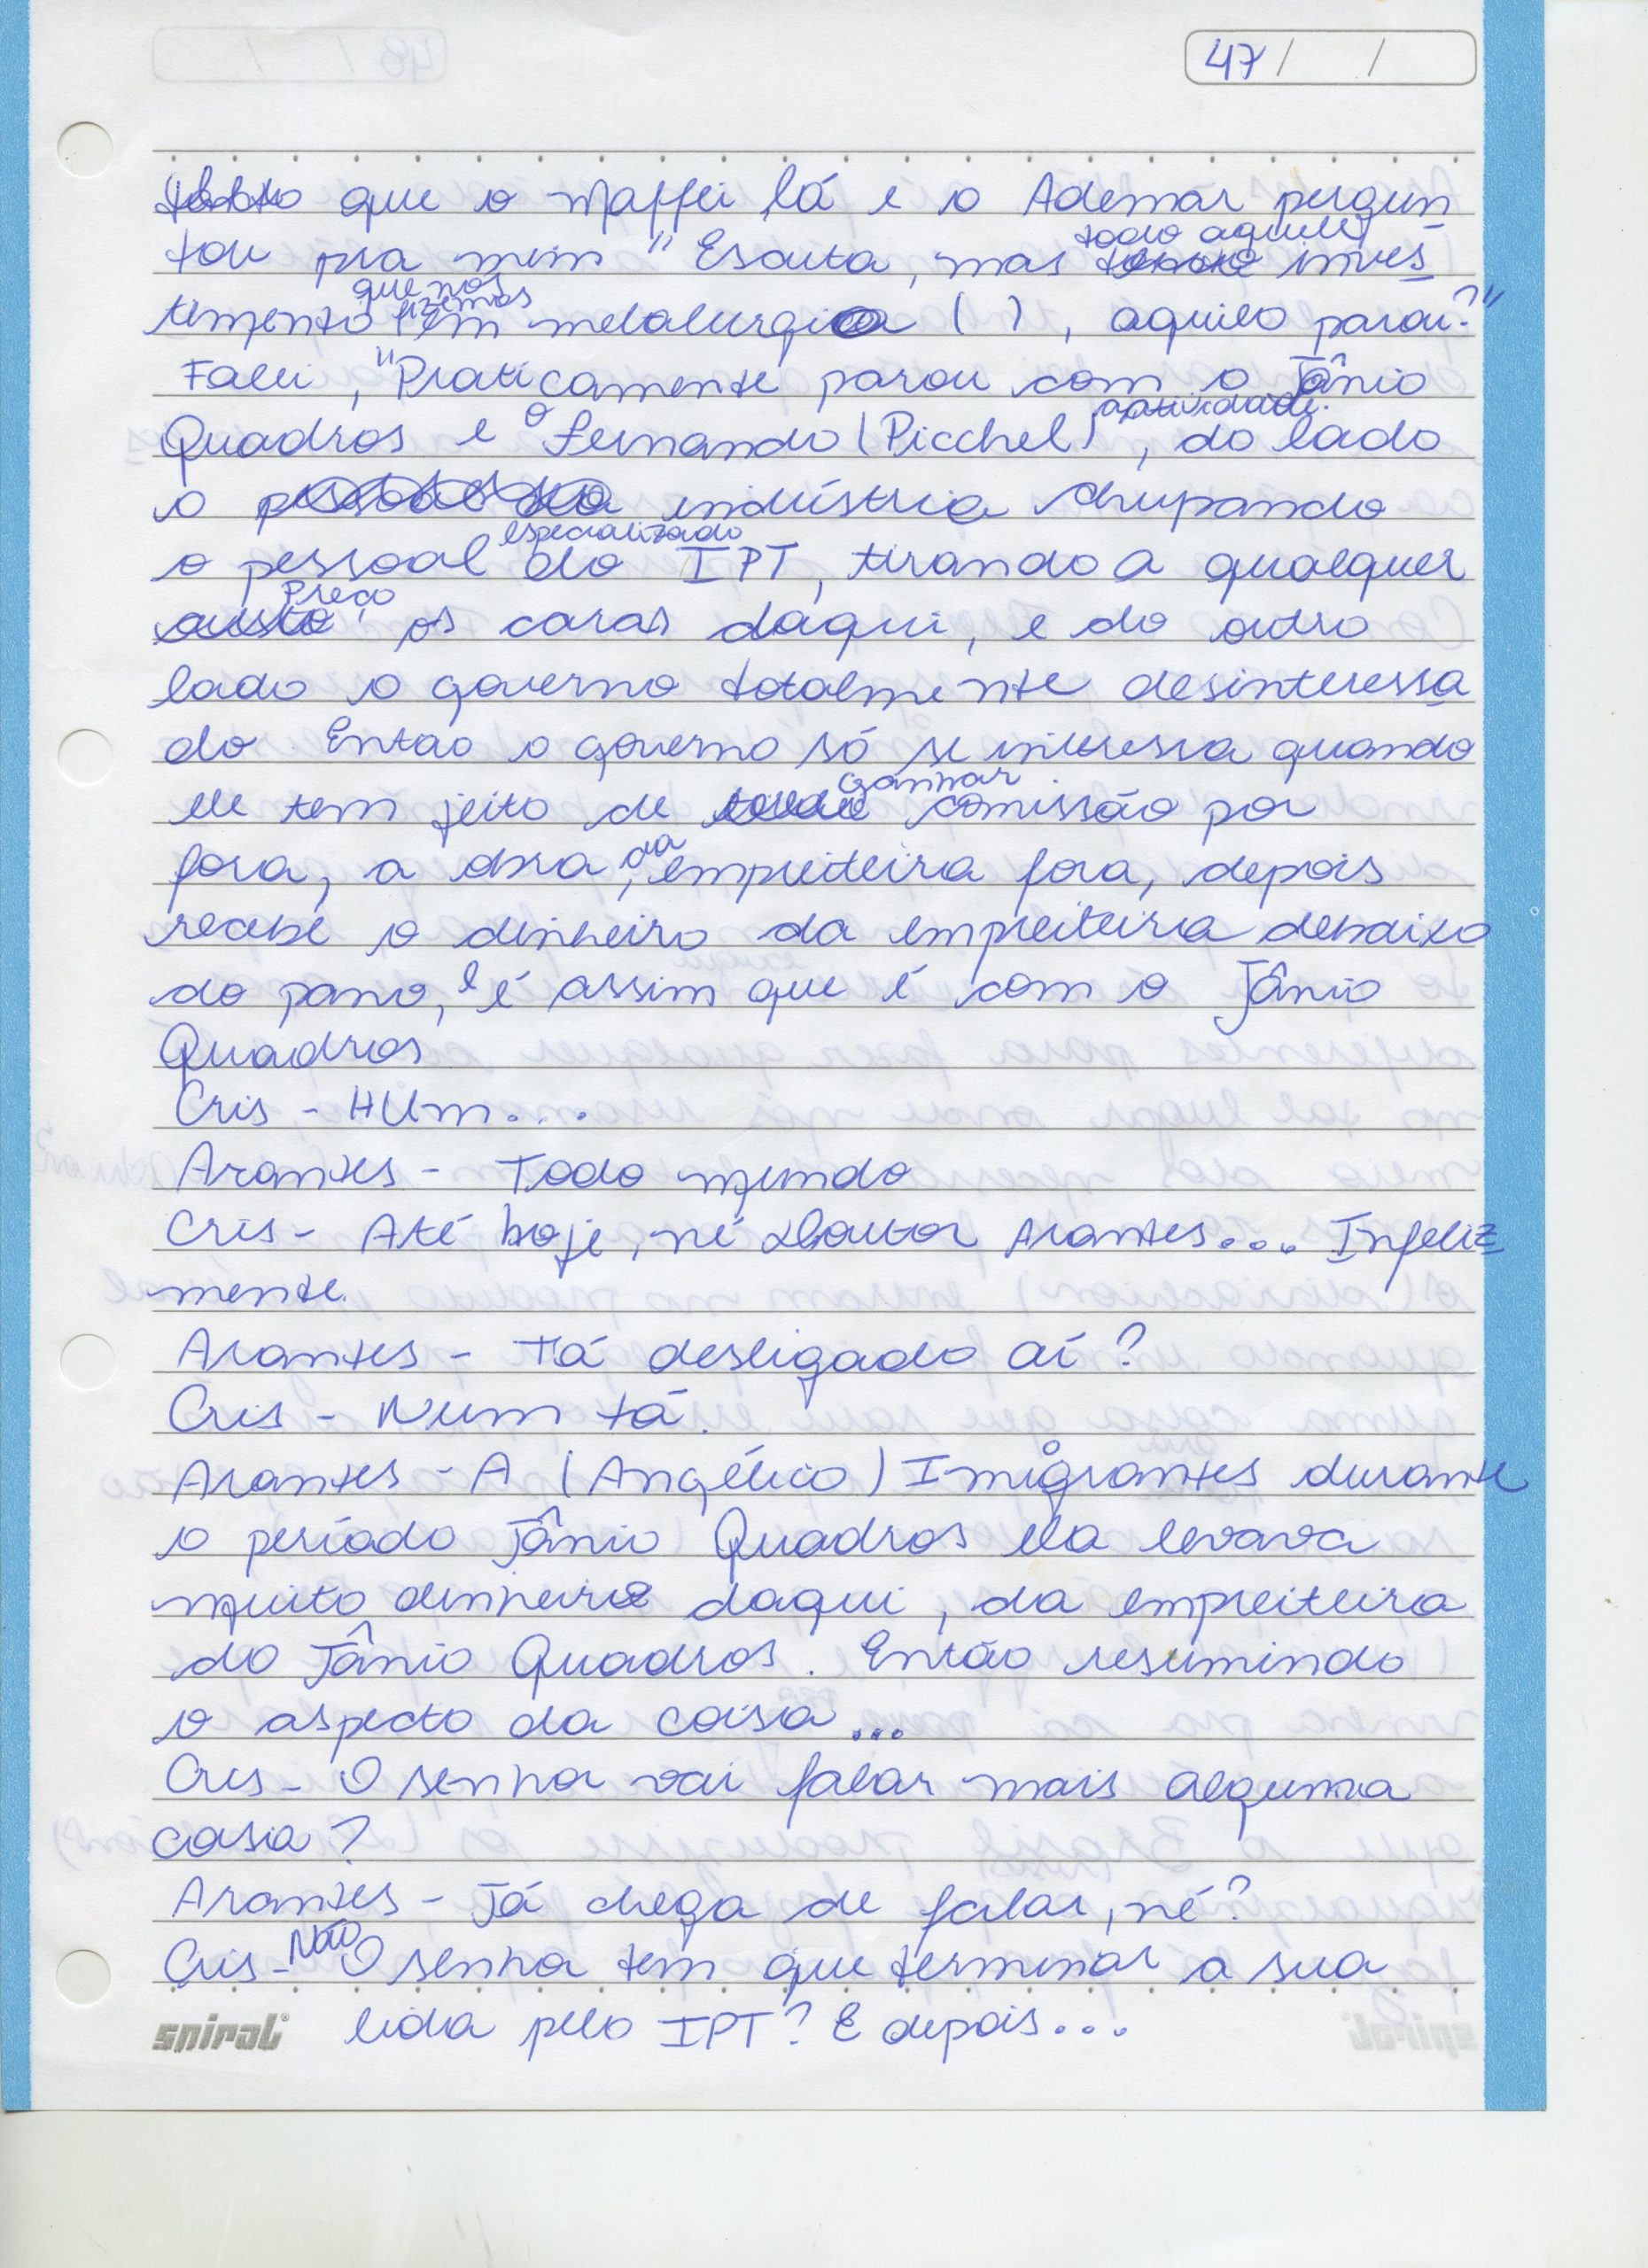 47 / /
que o Maffei lá e o Ademar pergun
tou pra mim "Escuta, mas todo aquele inves
timento que nós fizemos em metalurgica ( ), aquilo parou?"
Falei, "Praticamente parou com o Jânio
Quadros e o Fernando (Picchel) , do lado
o indústria chupando
o pessoal especializado do IPT, tirando a qualquer
preço os caras daqui, e do outro
lado o governo totalmente desinteressa
do. Então o governo só se interessa quando
ele tem jeito de ganhar comissão por
fora, a obra, da empreiteira fora, depois
recebe o dinheiro da empreiteira debaixo
do pano, e é assim que é com o Jânio
Quadros
Cris - HUm...
Arantes - Todo mundo
Cris - Até hoje, né Doutor Arantes... Infeliz
mente.
Arantes - Tá desligado aí?
Cris - Num tá.
Arantes - A (Angélico) Imigrantes durante
o período Jânio Quadros ela levava
muito dinheiro daqui, da empreiteira
do Jânio Quadros. Então resumindo
o aspecto da coisa...
Cris - O senhor vai falar mais alguma
coisa?
Arantes - Já chega de falar, né?
Cris - Não O senhor tem que terminar a sua
lida pelo IPT? E depois...
spiral®